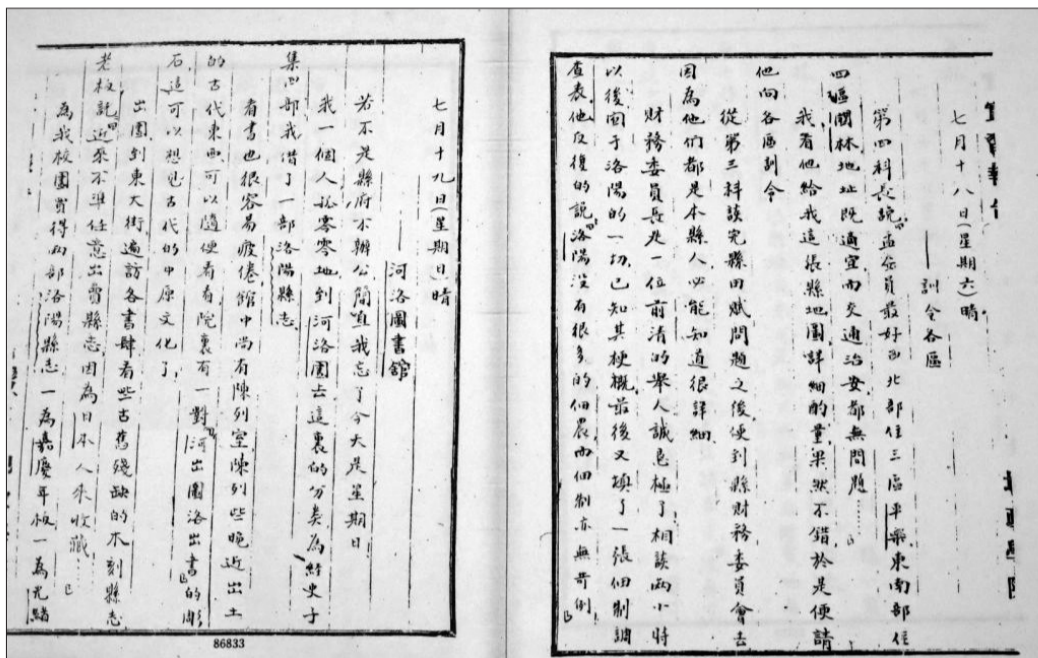 七月十八日(星期六)晴
——訓令各區
第四科長說「孟委員最好西北部住三區平樂東南部住
四區關林地址既適宜而交通治安都無問題……」
我看他給我這張縣地圖詳細酌量果然不錯於是便請
他向各區訓令
從第三科談完縣田賦問題之後便到縣財務委員會去
因為他們都是本縣人必能知道很詳細
財務委員長是一位前清的舉人誠懇極了相談兩小時
以後関于洛陽的一切已知其梗概最後又填了一張佃制調
查表他反復的說「洛陽沒有很多的佃農而佃制亦無苛例」
七月十九日(星期日)晴
——河洛圖書舘
若不是縣府不辦公簡直我忘了今天是星期日
我一個人孤零零地到河洛圖去這裏的分类為經史子
集四部我借了一部洛陽縣志
看書也很容易疲倦館中尚有陳列室陳列些晚近出土
的古代東西可以隨便看看院裏有一對「河出圖洛出書」的彫
石這可以想見古代的中原文化了
出圖到東大街遍訪各書肆看些古舊殘缺的木刻縣志
老板說「近來不準任意出賣縣志因為日本人來收藏……」
為我校圖買得兩部洛陽縣志一為嘉慶年板一為光緒
86833